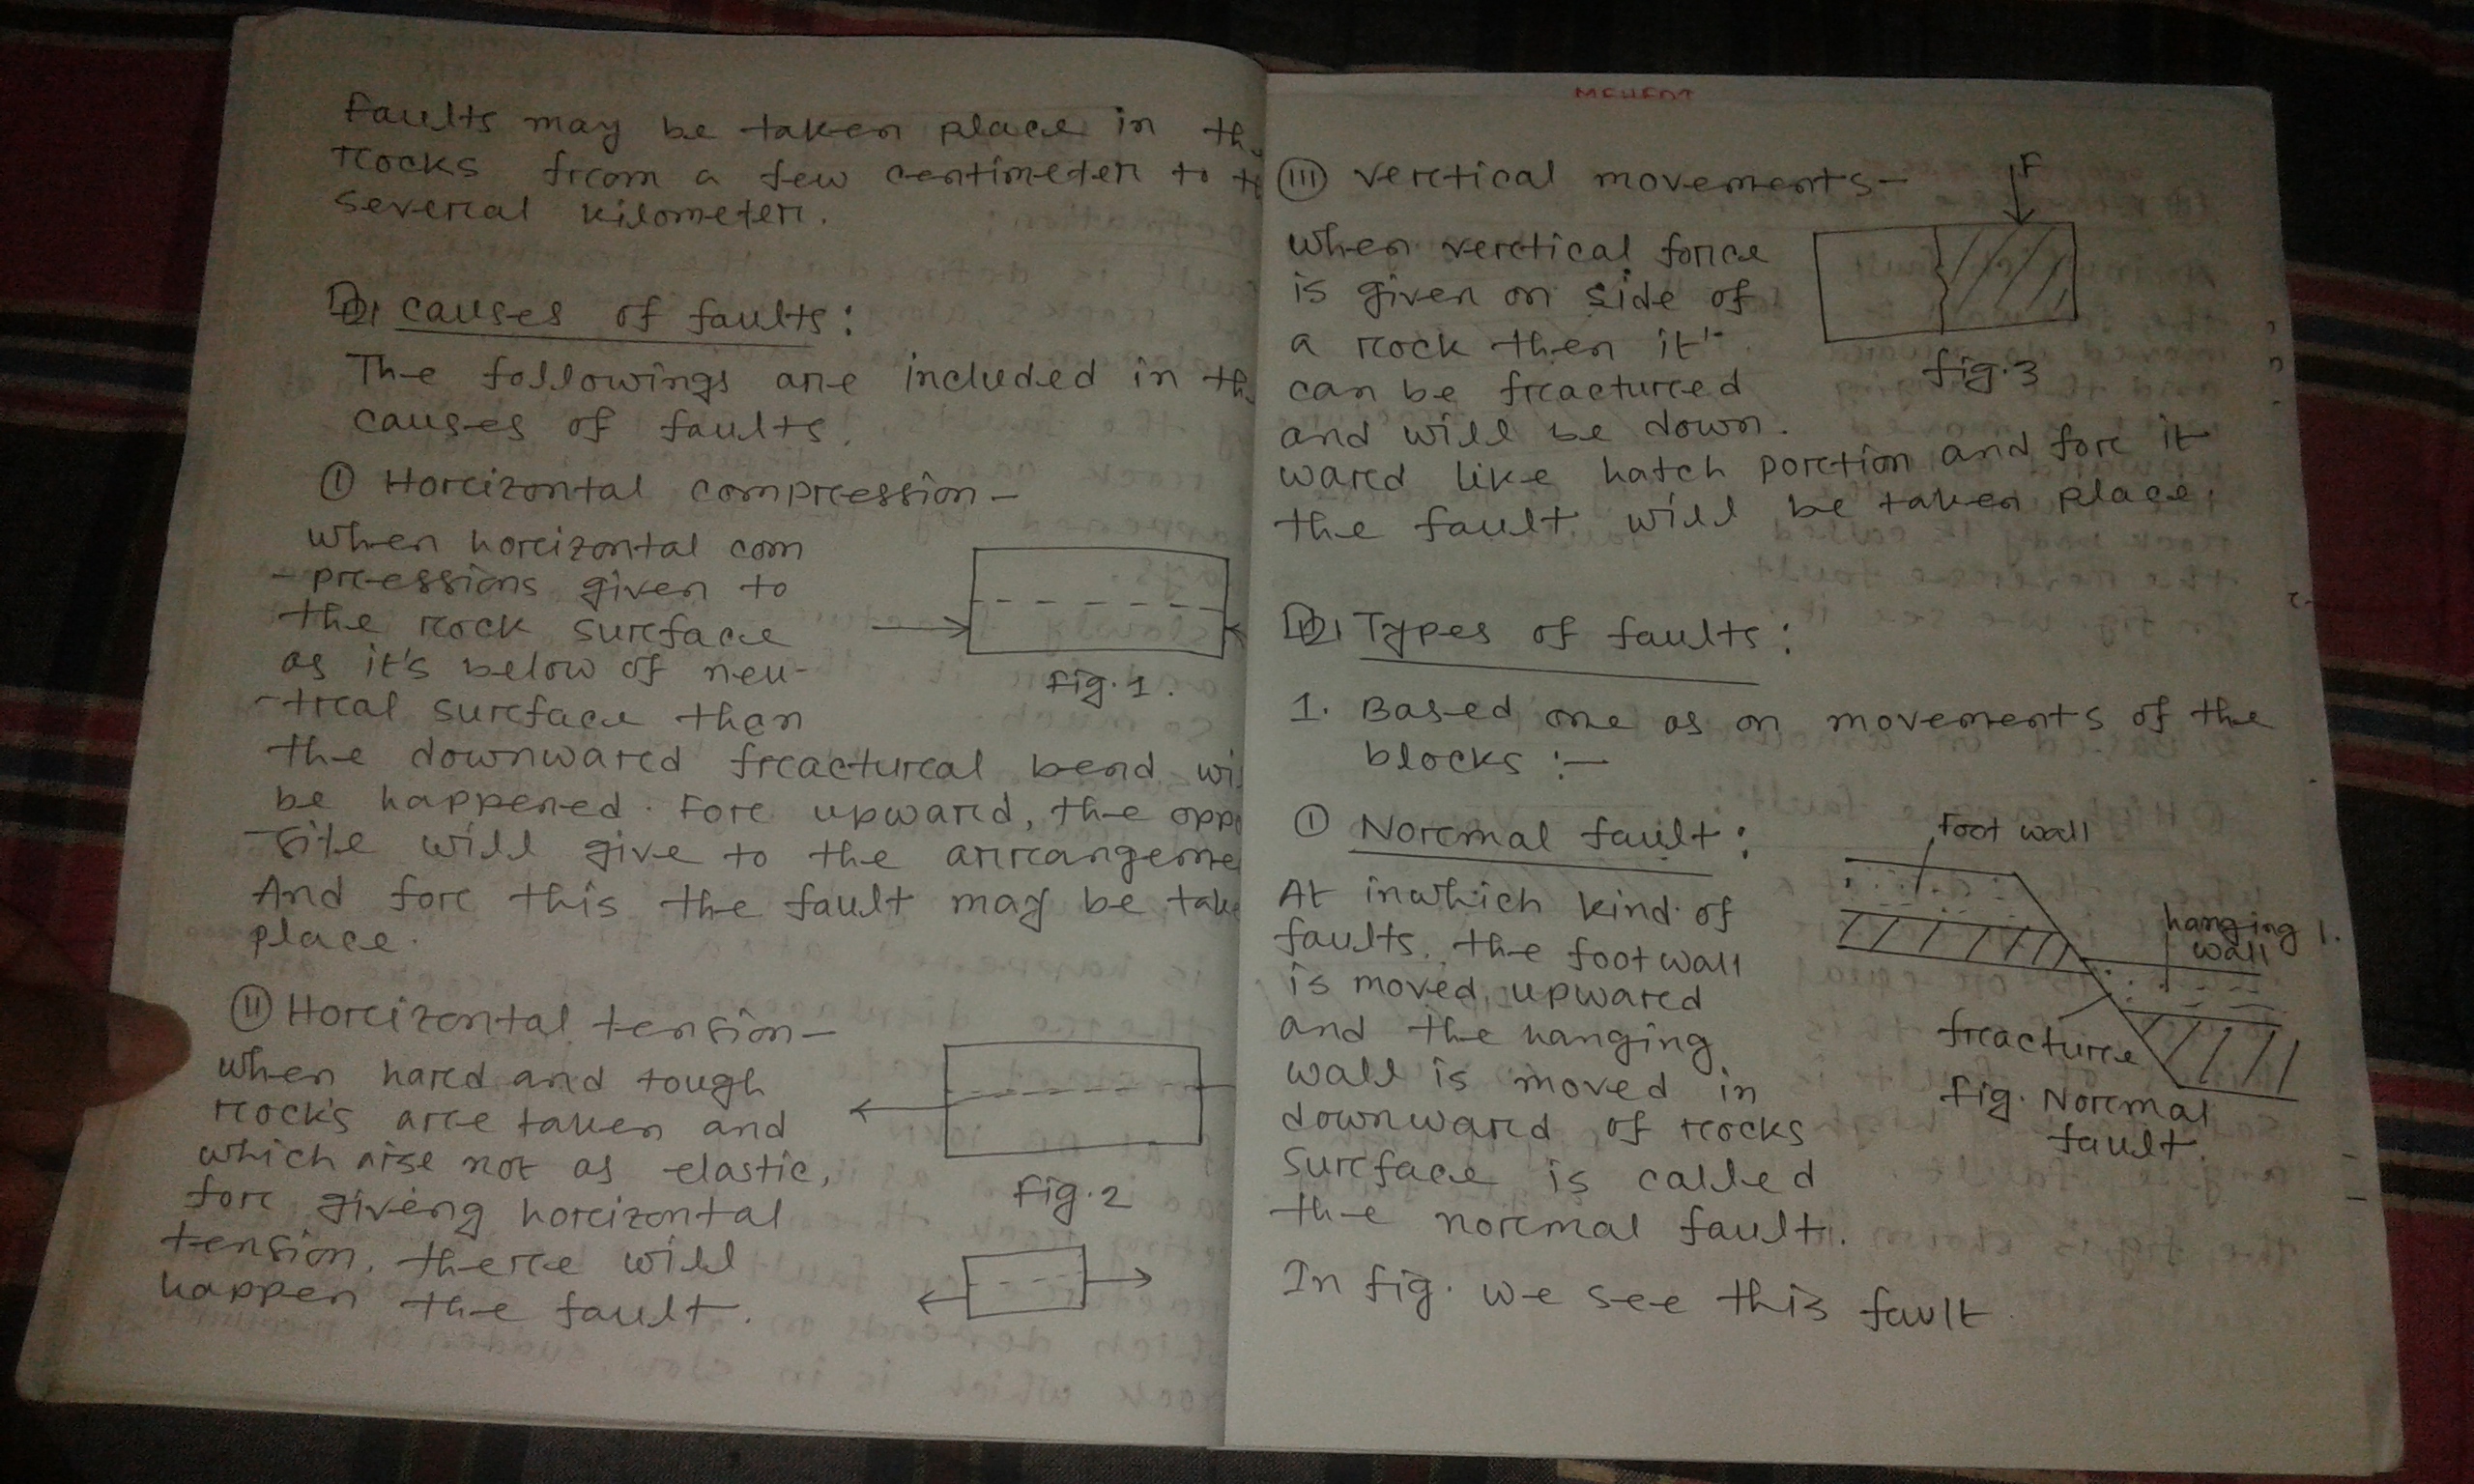 faults may be taken place in
rocks from a few centimeter to
several kilometer.
causes of faults:
The followings are included in
causes of faults.
I Horizontal compression-
when horizontal com
-pressions given to
the rock surface
as it's below of neu-
-tral surface then
the downward fractural bend
be happened. For upward, the
-site will give to the
And for this the fault may be
place.
Fig. 1.
II Horizontal tension-
when hard and tough
rocks are taken and
which arse not as elastic,
for giveng horizontal
tension, there will
happen the fault.
Fig. 2
III vertical movements-
when vertical force
is given on side of
a rock then it
can be fractured
and will be down.
ward like hatch portion and for it
the fault will be taken place.
F
fig. 3
Types of faults:
1. Based one as on movements of the
blocks :-
I Normal fault:
At inwhich kind of
faults, the footwall
is moved upward
and the hanging
wall is moved in
downward of rocks
surface is called
the normal fault.
In fig. we see this fault
foot wall
hanging
wall
fracture
fig. Normal
fault.